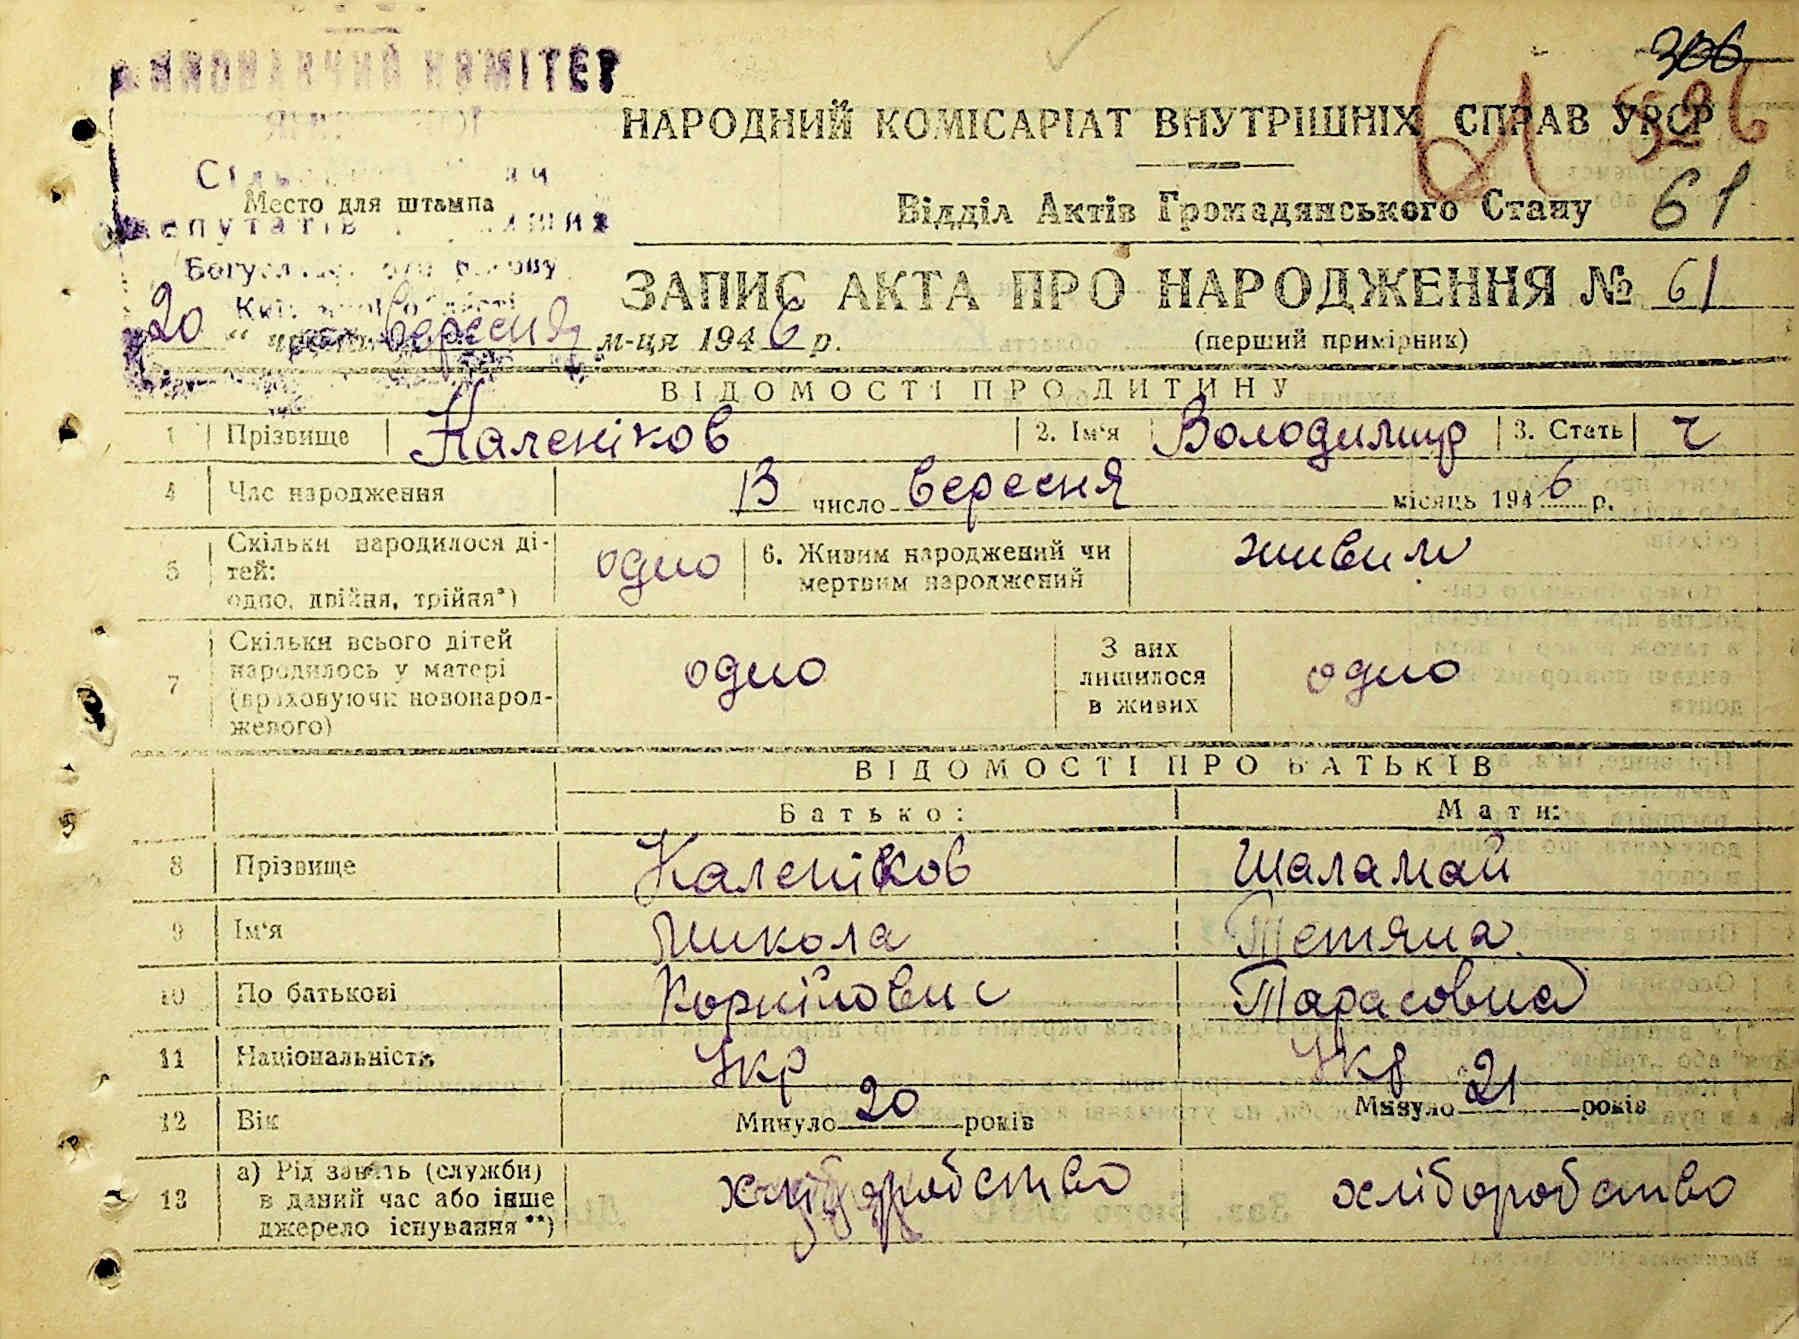 306
ВИКОНАВЧИЙ КОМІТЕТ
НАРОДНИЙ КОМІСАРІАТ ВНУТРІШНІХ СПРАВ УРСР
61 326
Место для штампа
депутатів
Відділ Актів Громадянського Стану 61
ЗАПИС АКТА ПРО НАРОДЖЕННЯ № 61
20 " вересня м-ця 1946 р.
(перший примірник)
ВІДОМОСТІ ПРО ДИТИНУ
1 Прізвище Каленіков 2. Ім'я Володимир 3. Стать ч
4 Час народження 13 число вересня місяць 1946 р.
5 Скільки народилося ді-
тей:
одно, двійня, трійня*) одно 6. Живим народжений чи
мертвим народжений живим
7 Скільки всього дітей
народилось у матері
(враховуючи новонарод-
женого) одно З них
лишилося
в живих одно
ВІДОМОСТІ ПРО БАТЬКІВ
Батько: Мати:
8 Прізвище Каленіков Шаламай
9 Ім'я Микола Тетяна
10 По батькові Корнійович Тарасовна
11 Національність Укр Укр
12 Вік Минуло 20 років Минуло 21 років
13 а) Рід занять (служби)
в даний час або інше
джерело існування**) хліборобство хліборобство